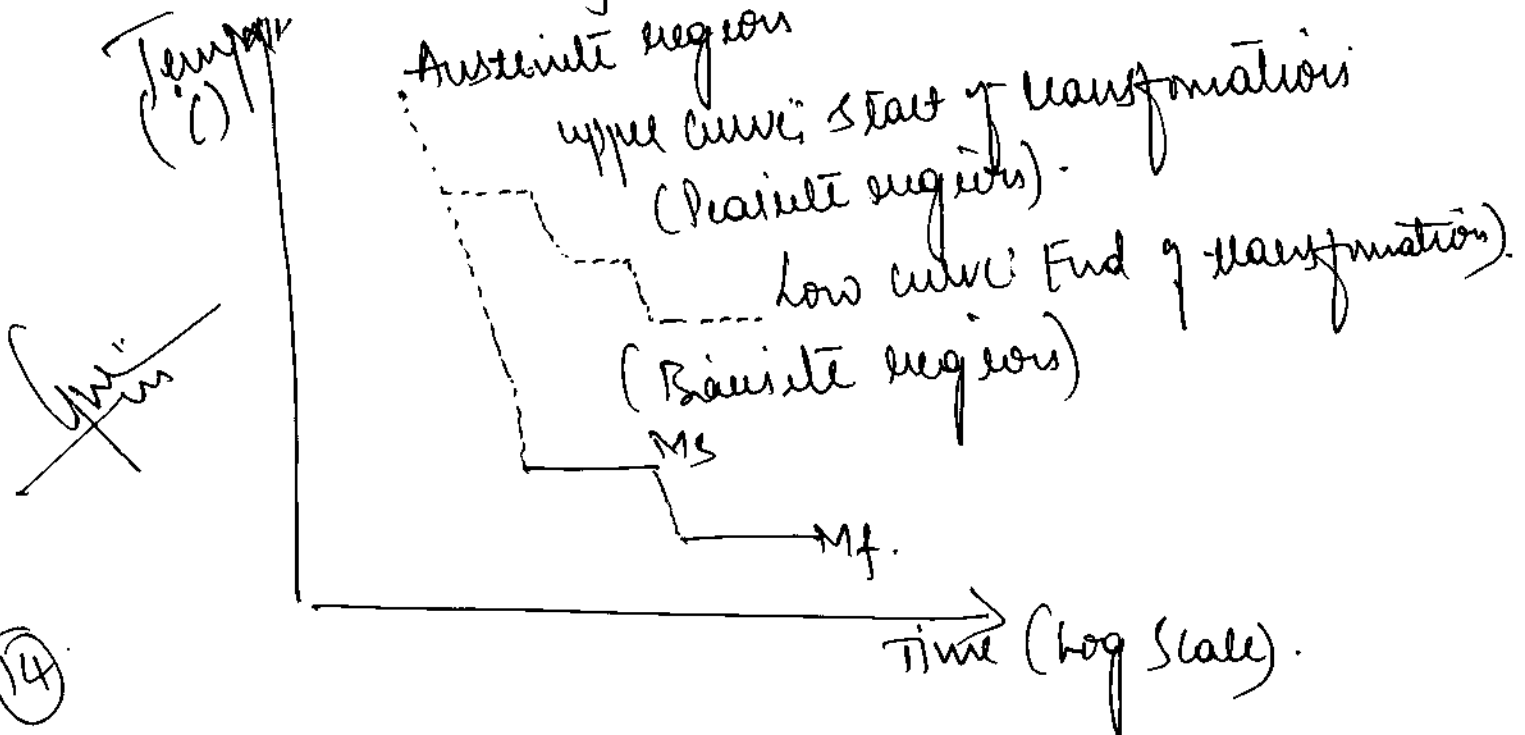 Temp
(°C)
Austenite region
upper curve: Start of transformation
(Pearlite region).
Low curve: End of transformation).
(Bainite region)
Ms
Mf.
Time (Log Scale).
14